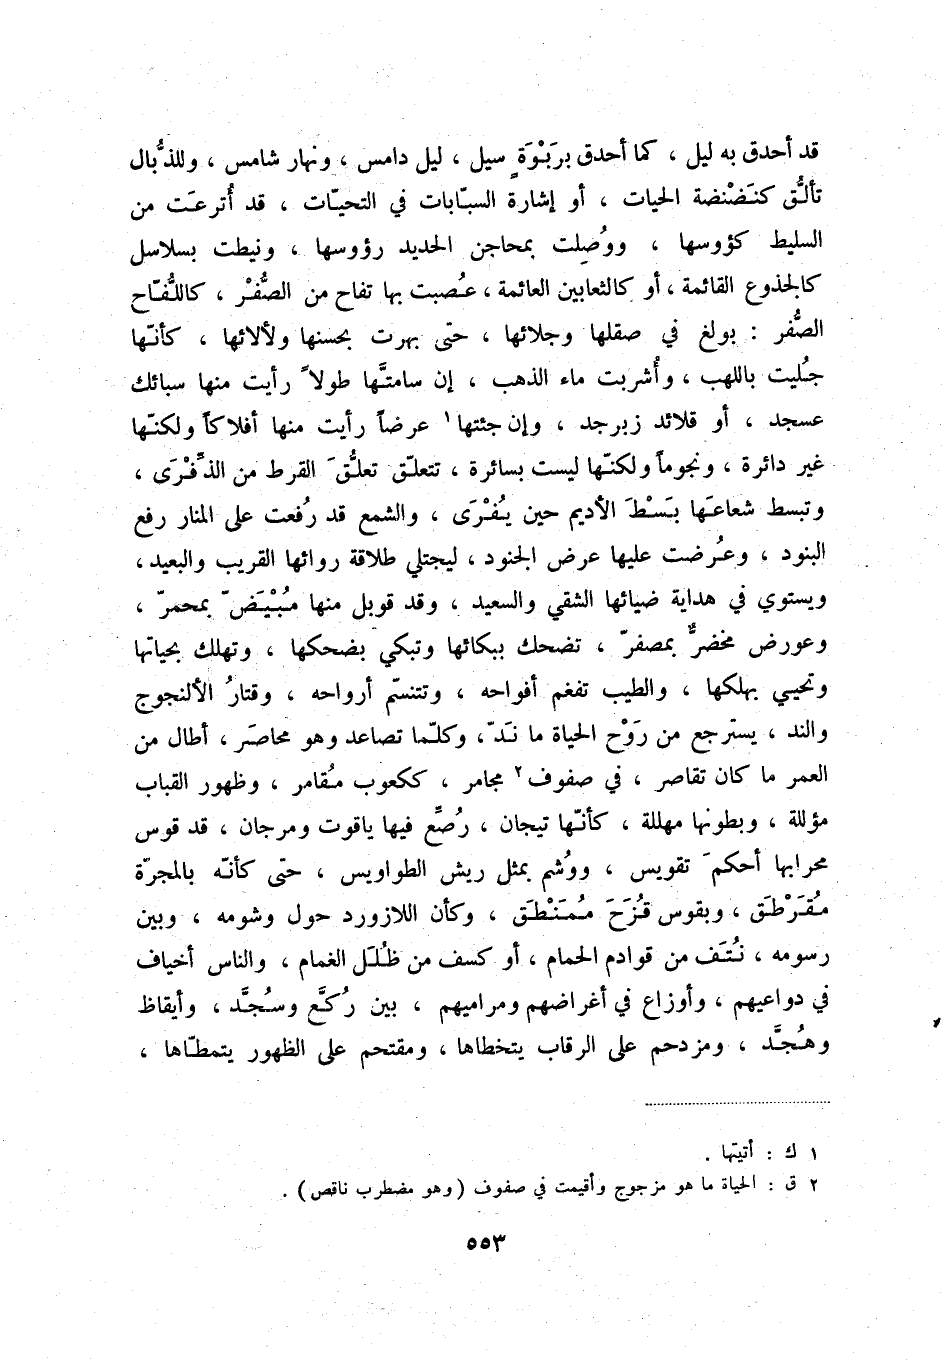 قد أحدق به ليل ، كما أحدق بربْوَةٍ سيل ، ليل دامس ، ونهار شامس ، وللذُّبال
تألُّق كنَضْنضة الحيات ، أو إشارة السبّابات في التحيّات ، قد أُترعَت من
السليط كؤوسها ، ووُصِلت بمحاجن الحديد رؤوسها ، ونيطت بسلاسل
كالجذوع القائمة ، أو كالثعابين العائمة ، عُصبت بها تفاح من الصُّفْر ، كاللُّفّاح
الصُّفر : بولغ في صقلها وجلائها ، حتى بهرت بحسنها ولألائها ، كأنّها
جُليت باللهب ، وأُشربت ماء الذهب ، إن سامتَّها طولاً رأيت منها سبائك
عسجد ، أو قلائد زبرجد ، وإن جئتها١ عرضاً رأيت منها أفلاكاً ولكنّها
غير دائرة ، ونجوماً ولكنّها ليست بسائرة ، تتعلّق تعلُّقَ القرط من الذِّفْرَى ،
وتبسط شعاعَها بَسْطَ الأديم حين يُفْرَى ، والشمع قد رُفعت على المنار رفع
البنود ، وعُرضت عليها عرض الجنود ، ليجتلي طلاقة روائها القريب والبعيد ،
ويستوي في هداية ضيائها الشقي والسعيد ، وقد قوبل منها مُبْيَضّ بمحمرّ ،
وعورض مخضرٌّ بمصفرّ ، تضحك ببكائها وتبكي بضحكها ، وتهلك بحياتها
وتحيي بهلكها ، والطيب تفغم أفواحه ، وتتنسّم أرواحه ، وقتارُ الألنجوج
والند ، يسترجع من رَوْح الحياة ما نَدّ ، وكلّما تصاعد وهو محاصَر ، أطال من
العمر ما كان تقاصر ، في صفوف٢ مجامر ، ككعوب مُقامر ، وظهور القباب
مؤللة ، وبطونها مهللة ، كأنّها تيجان ، رُصِّع فيها ياقوت ومرجان ، قد قوس
محرابها أحكمَ تقويس ، ووُشم بمثل ريش الطواويس ، حتى كأنّه بالمجرّة
مُقَرْطَق ، وبقوس قُزَحَ مُمَنْطَق ، وكأن اللازورد حول وشومه ، وبين
رسومه ، نُتَف من قوادم الحمام ، أو كسف من ظُلَل الغمام ، والناس أخياف
في دواعيهم ، وأوزاع في أغراضهم ومراميهم ، بين رُكَّع وسُجَّد ، وأيقاظ
وهُجَّد ، ومزدحم على الرقاب يتخطاها ، ومقتحم على الظهور يتمطّاها ،
١ ك : أتيتها .
٢ ق : الحياة ما هو مزجوج وأقيمت في صفوف (وهو مضطرب ناقص) .
٥٥٣